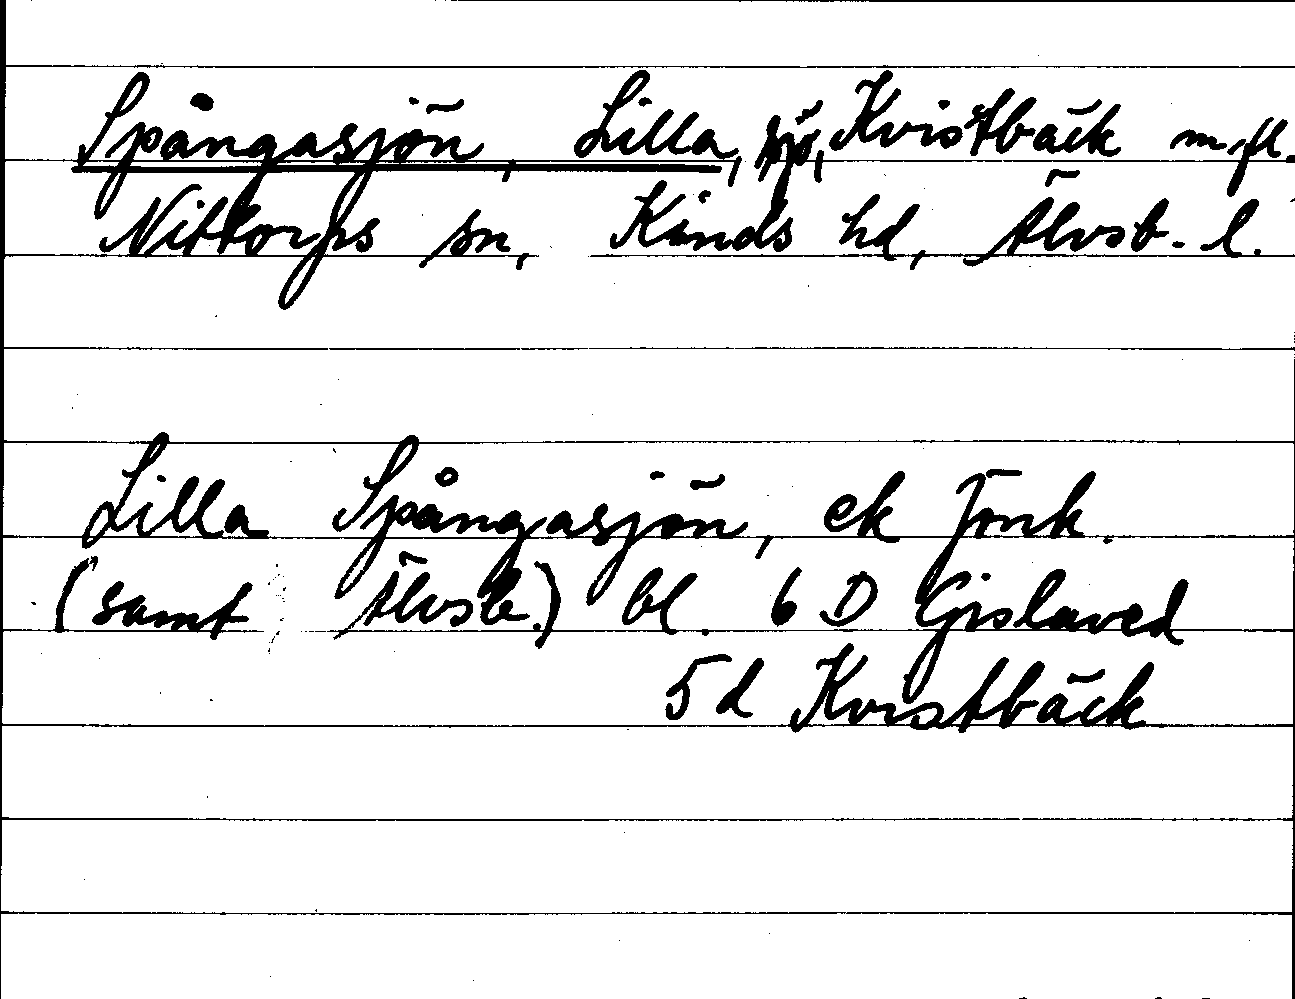 Spångasjön, Lilla, sjö, Kvistbäck m. fl.
Nittorps sn, Kinds hd, Älvsb. l.
Lilla Spångasjön, ek Jönk.
(samt Älvsb.) bl. 6 D Gislaved
5d Kvistbäck